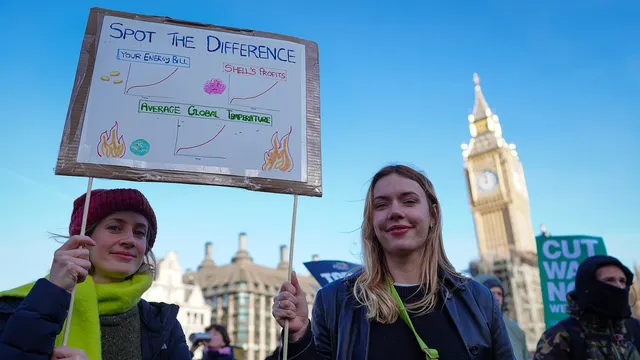 SPOT THE DIFFERENCE
YOUR ENERGY BILL
SHELL'S PROFITS
AVERAGE GLOBAL TEMPERATURE
CUT
NO